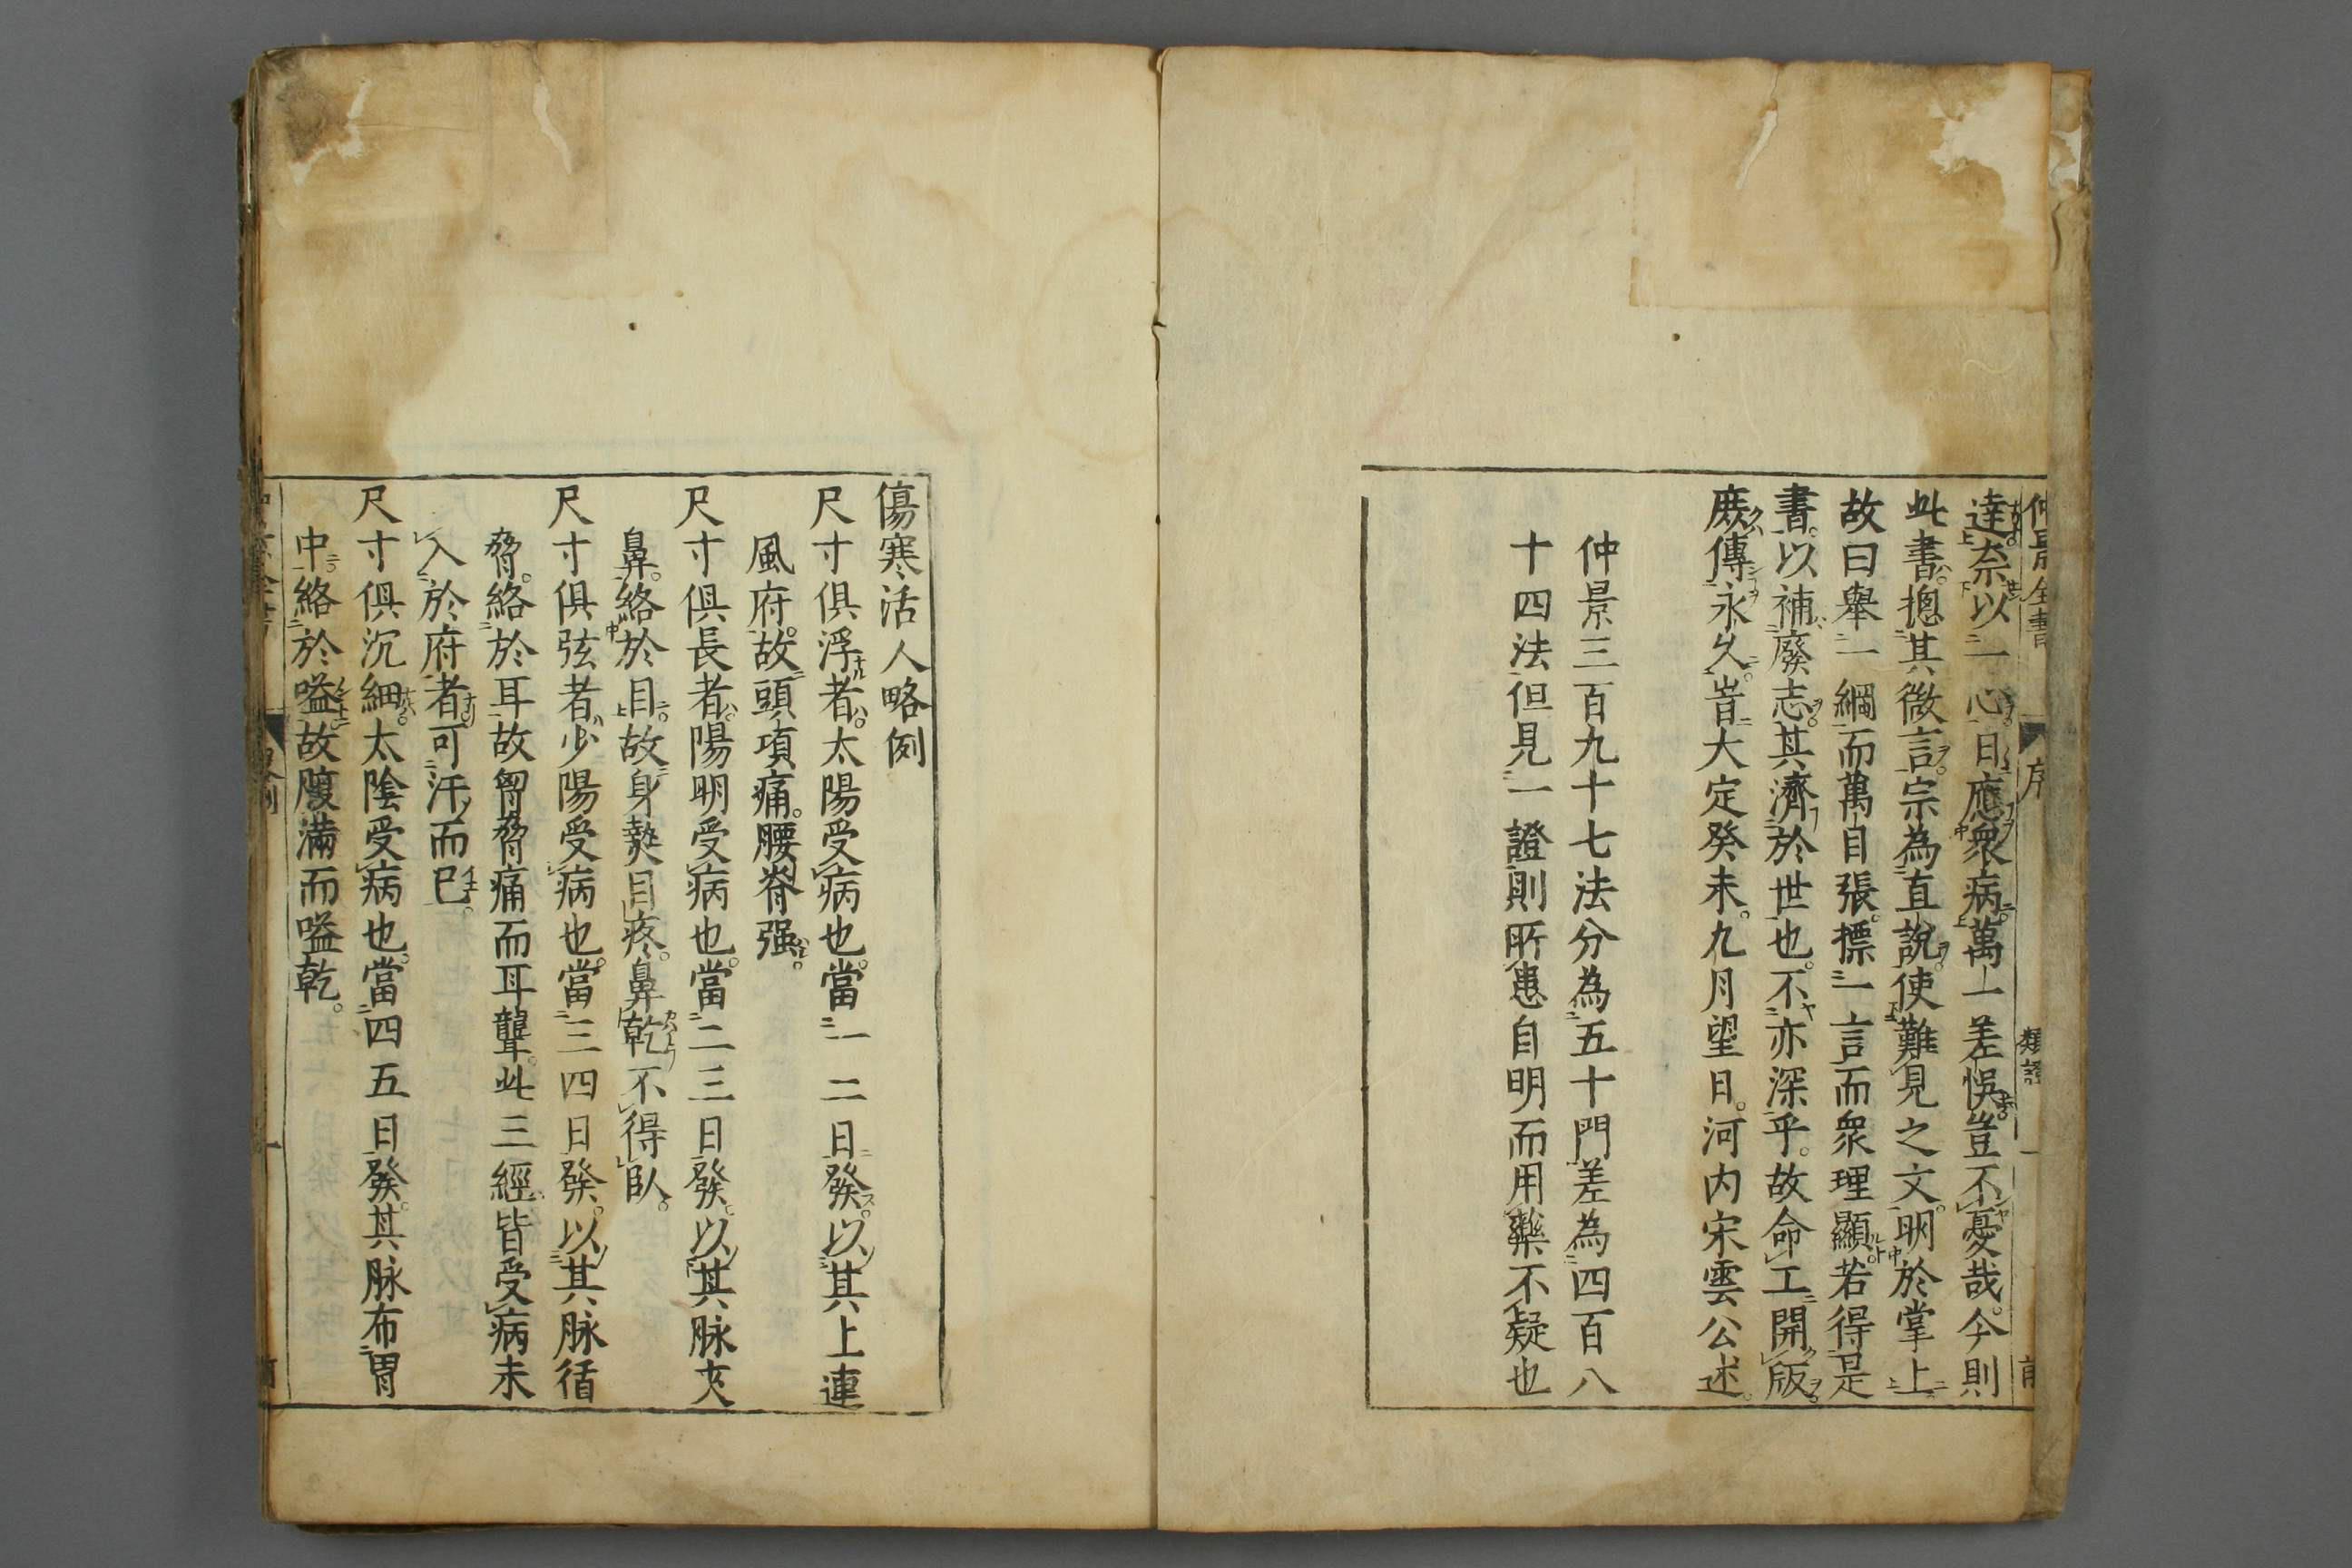 仲景全書 序 類證 一
達奈以一心日應衆病萬一差悞豈不憂哉今則
此書揔其微言宗為直說使難見之文明於掌上
故曰舉一綱而萬目張摽一言而衆理顯若得是
書以補廢志其濟於世也不亦深乎故命工開版
庶傳永久旹大定癸未九月望日河内宋雲公述
仲景三百九十七法分為五十門差為四百八
十四法但見一證則所患自明而用藥不疑也
傷寒活人略例
尺寸俱浮者太陽受病也當一二日發以其上連
風府故頭項痛腰脊强
尺寸俱長者陽明受病也當二三日發以其脉夾
鼻絡於目故身熱目疼鼻乾不得臥
尺寸俱弦者少陽受病也當三四日發以其脉循
脅絡於耳故胷脅痛而耳聾此三經皆受病未
入於府者可汗而已
尺寸俱沉細太陰受病也當四五日發其脉布胃
中絡於嗌故腹滿而嗌乾